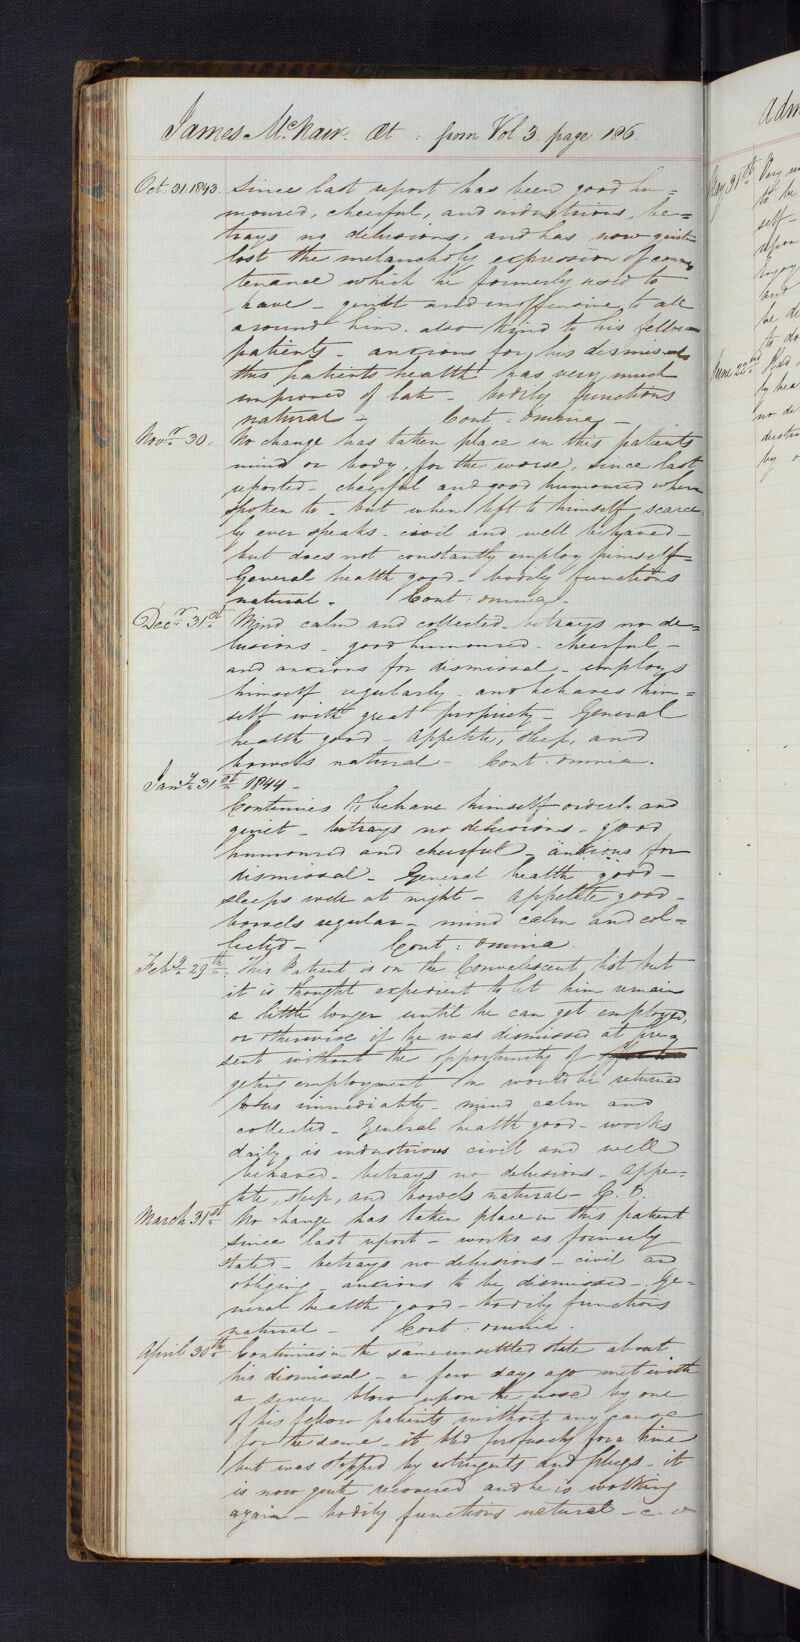 James McNair. Æt : from Vol 3. page 186.
Oct. 31. 1843. Since last report has been good hu=
moured, cheerful, and industrious, be=
trays no delusions, and has now quite
lost the melancholy expression of coun
tenance which he formerly used to
have – gentle and inoffensive to all
around him. also kind to his fellow
patients – anxious for his dismissal
this patients health has very much
improved of late – bodily functions
natural – Cont: omnia –
Novr. 30. No change has taken place in this patients
mind or body, for the worse, since last
reported – cheerful and good humoured when
spoken to – but when left to himself scarce
ly ever speaks – civil and well behaved –
but does not constantly employ himself –
General health good – bodily functions
natural – Cont: omnia –
Decr. 31st. Mind calm and collected – betrays no de=
lusions – good humoured – cheerful –
and anxious for dismissal – employs
himself regularly – and behaves him=
self with great propriety – General
health good – appetite, sleep, and
bowels natural – Cont: omnia.
Jany. 31st. 1844 –
Continues to behave himself orderly and
quiet – betrays no delusions – good
humoured and cheerful – anxious for
dismissal – General health good –
sleeps well at night – appetite good –
bowels regular – mind calm and col=
lected – Cont: omnia.
Feby. 29th. This Patient is on the Convalescent list but
it is thought expedient to let him remain
a little longer until he can get employed,
or otherwise if he was dismissed at pre=
sent without the opportunity of
geting employment he would be returned
to us immediately – mind calm and
collected – General health good – works
daily, is industrious civil and well
behaved – betrays no delusions – appe=
tite, sleep, and bowels natural – C. O.
March 31st. No change has taken place in this patient
since last report – works as formerly
stated – betrays no delusions – civil and
obliging – anxious to be dismissed – Ge=
neral health good – bodily functions
natural – Cont: omnia.
April 30th. Continues in the same unsettled state about
his dismissal – a few days ago met with
a severe blow upon the nose by one
of his fellow patients without any cause
for the same – it bled profusely for a time
but was stopped by astringents and plugs – it
is now quite recovered and he is working
again – bodily functions natural – C. O
Adm
May 31st. Very
to be
self –
upon
and
be
to do
June 22nd. Had
by hea
no de
by